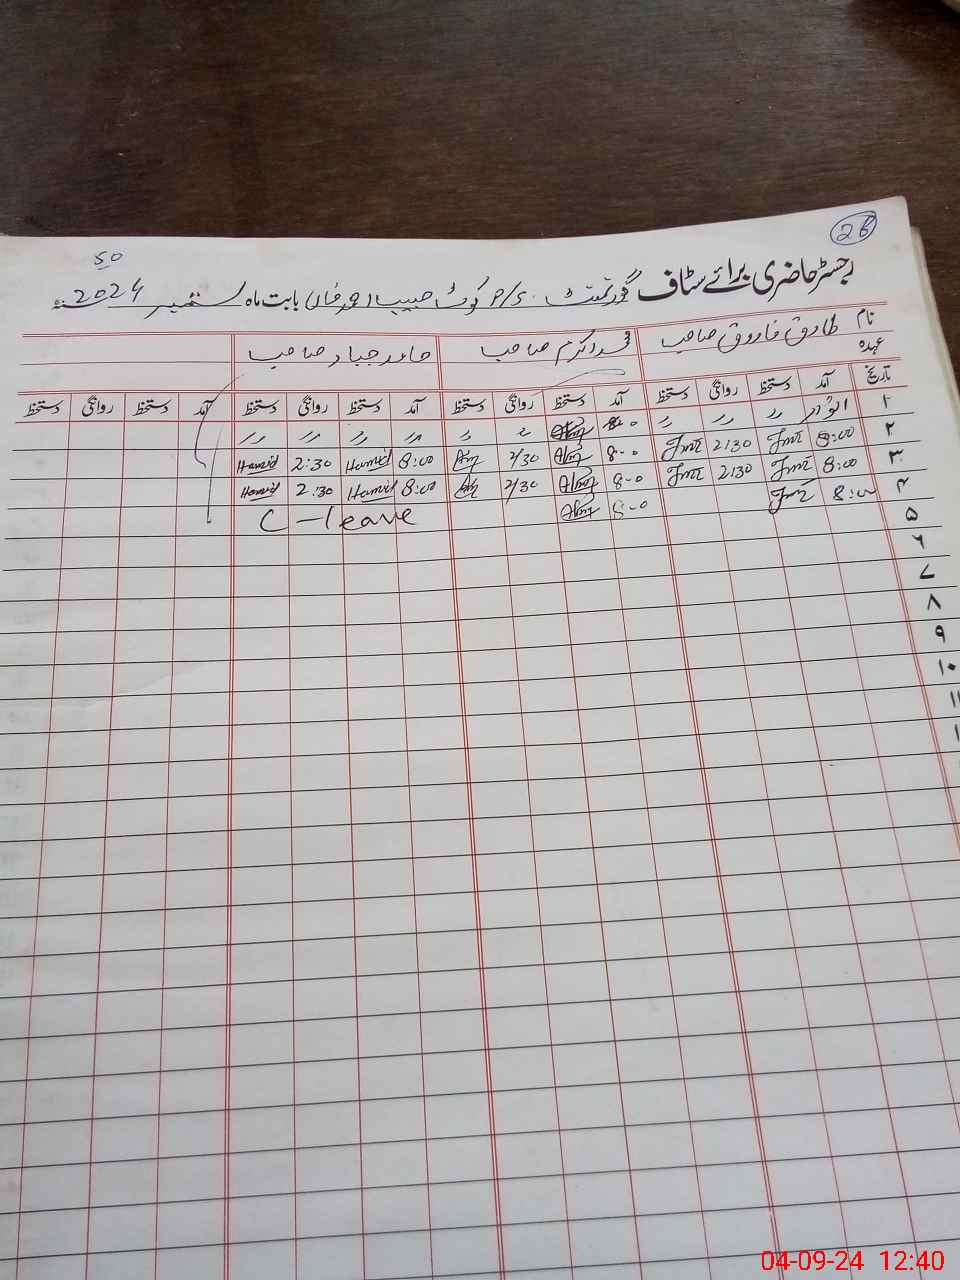 26
50
رجسٹر حاضری برائے سٹاف گورنمنٹ P/S کوٹ حبیب احمد خاں بابت ماہ ستمبر 2024ء
نام طارق فاروق صاحب محمد اکرم صاحب حامد جبار صاحب
عہدہ
تاریخ آمد دستخط روانگی دستخط آمد دستخط روانگی دستخط آمد دستخط روانگی دستخط آمد دستخط روانگی دستخط
۱ اتوار 〃 〃 〃 〃 〃 〃 〃 〃 〃
۲ 8:00 2:30 8-0 2/30 8:00 Hamid 2:30 Hamid
۳ 8:00 2:30 8-0 2/30 8:00 Hamid 2:30 Hamid
۴ 8:00 8-0 C-leave
۵
۶
۷
۸
۹
۱۰
۱۱
04-09-24 12:40